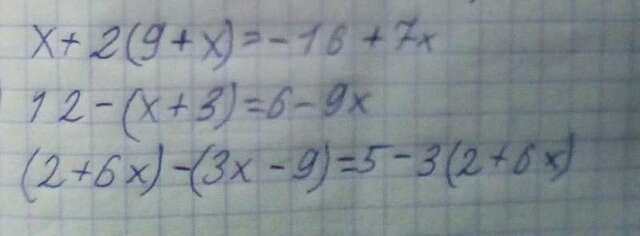 x + 2(9 + x) = -16 + 7x
12 - (x + 3) = 6 - 9x
(2 + 6x) - (3x - 9) = 5 - 3(2 + 6x)